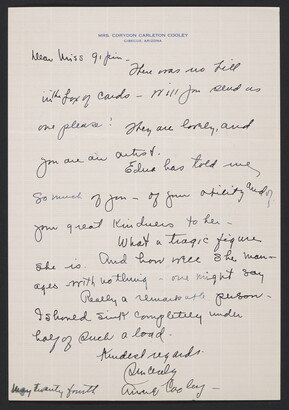 MRS. CORYDON CARLETON COOLEY
Dear Miss
There was no bill
in the box of cards - Will you send us
one please! They are lovely, and
you are an artist.
Edna has told me
so much of you - of your ability and of
your great kindness to her -
What a tragic figure
she is. And how well she man-
ages with nothing - one might say
Really a remarkable person -
I should sink completely under
half of such a load.
Kindest regards
Sincerely
Cooley -
May twenty fourth